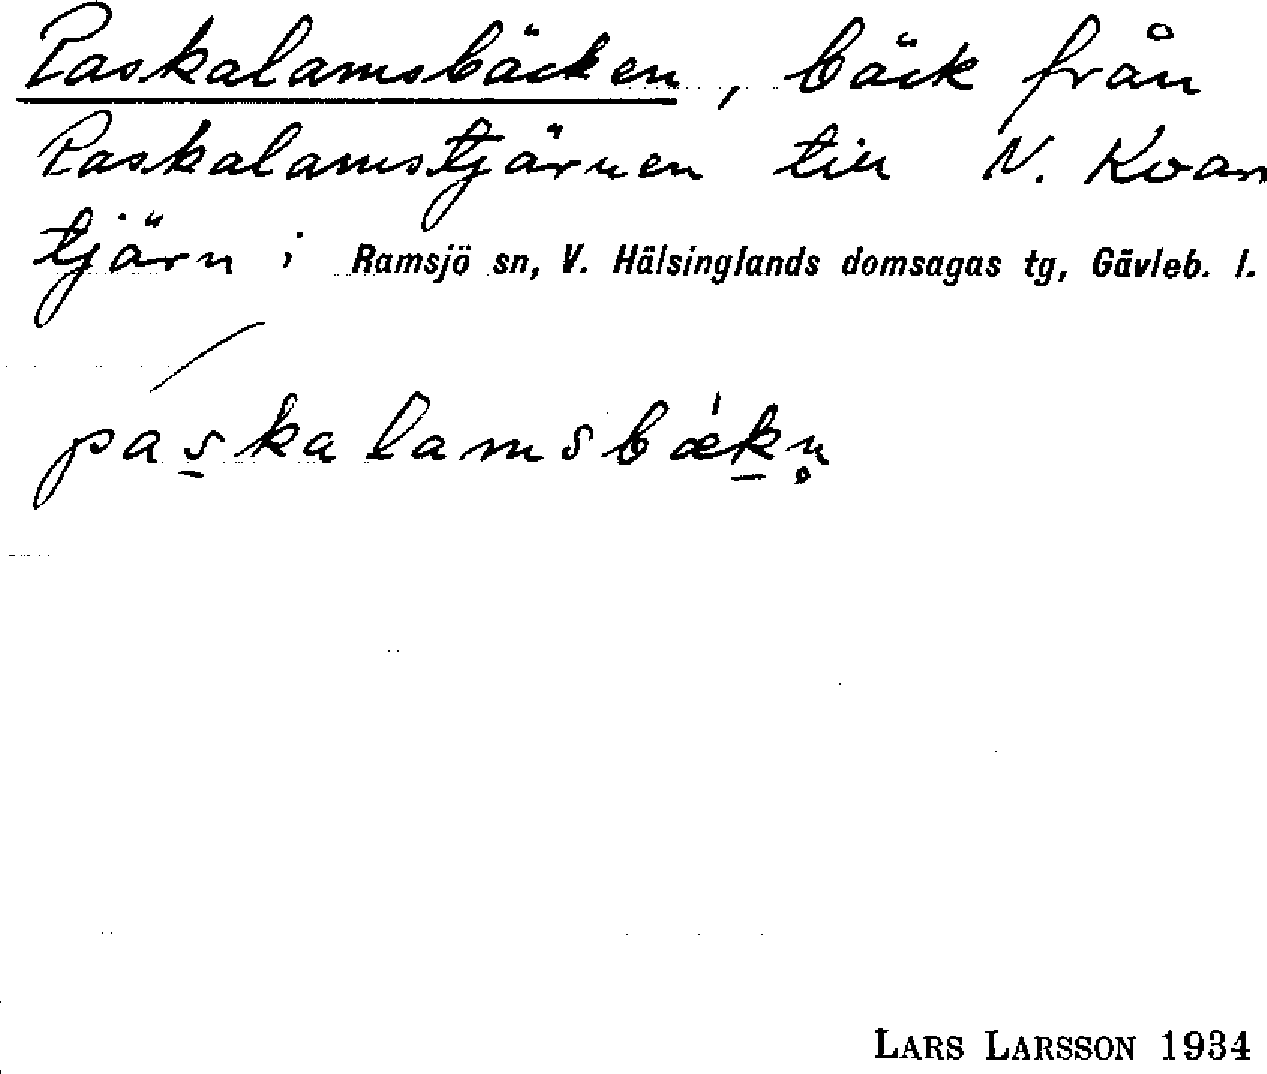 Paskalamsbäcken, bäck från
Paskalamstjärnen till N. Kvarn
tjärn i Ramsjö sn, V. Hälsinglands domsagas tg, Gävleb. l.
páskalamsbæ̀kn̥
LARS LARSSON 1934